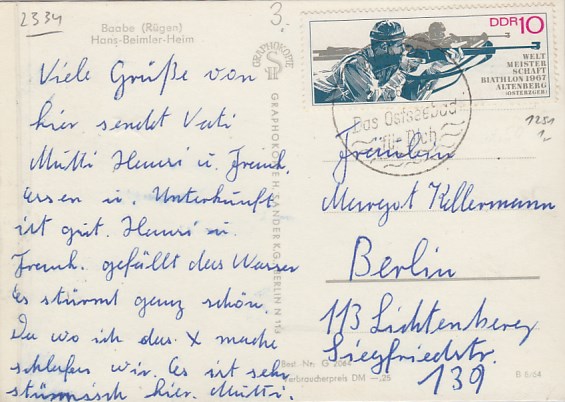 2334
3.
Baabe (Rügen)
Hans-Beimler-Heim
Viele Grüße von
hier sendet Vati
Mutti Henri u. Frank.
Essen u. Unterkunft
ist gut. Henri u.
Frank. gefällt das Wasser
Es stürmt ganz schön.
Da wo ich das X mache
schlafen wir. Es ist sehr
stürmisch hier. Mutti.
GRAPHOKOPIE
GRAPHOKOPIE H. SANDER K.G. BERLIN N 113
DDR 10
WELT
MEISTER
SCHAFT
BIATHLON 1967
ALTENBERG
(OSTERZGEB)
Das Ostseebad
für Dich
1251
1,-
Fräulein
Margot Kellermann
Berlin
113 Lichtenberg
Siegfriedstr.
139
Best. Nr. G 2064
Verbraucherpreis DM —,25
B 6/64